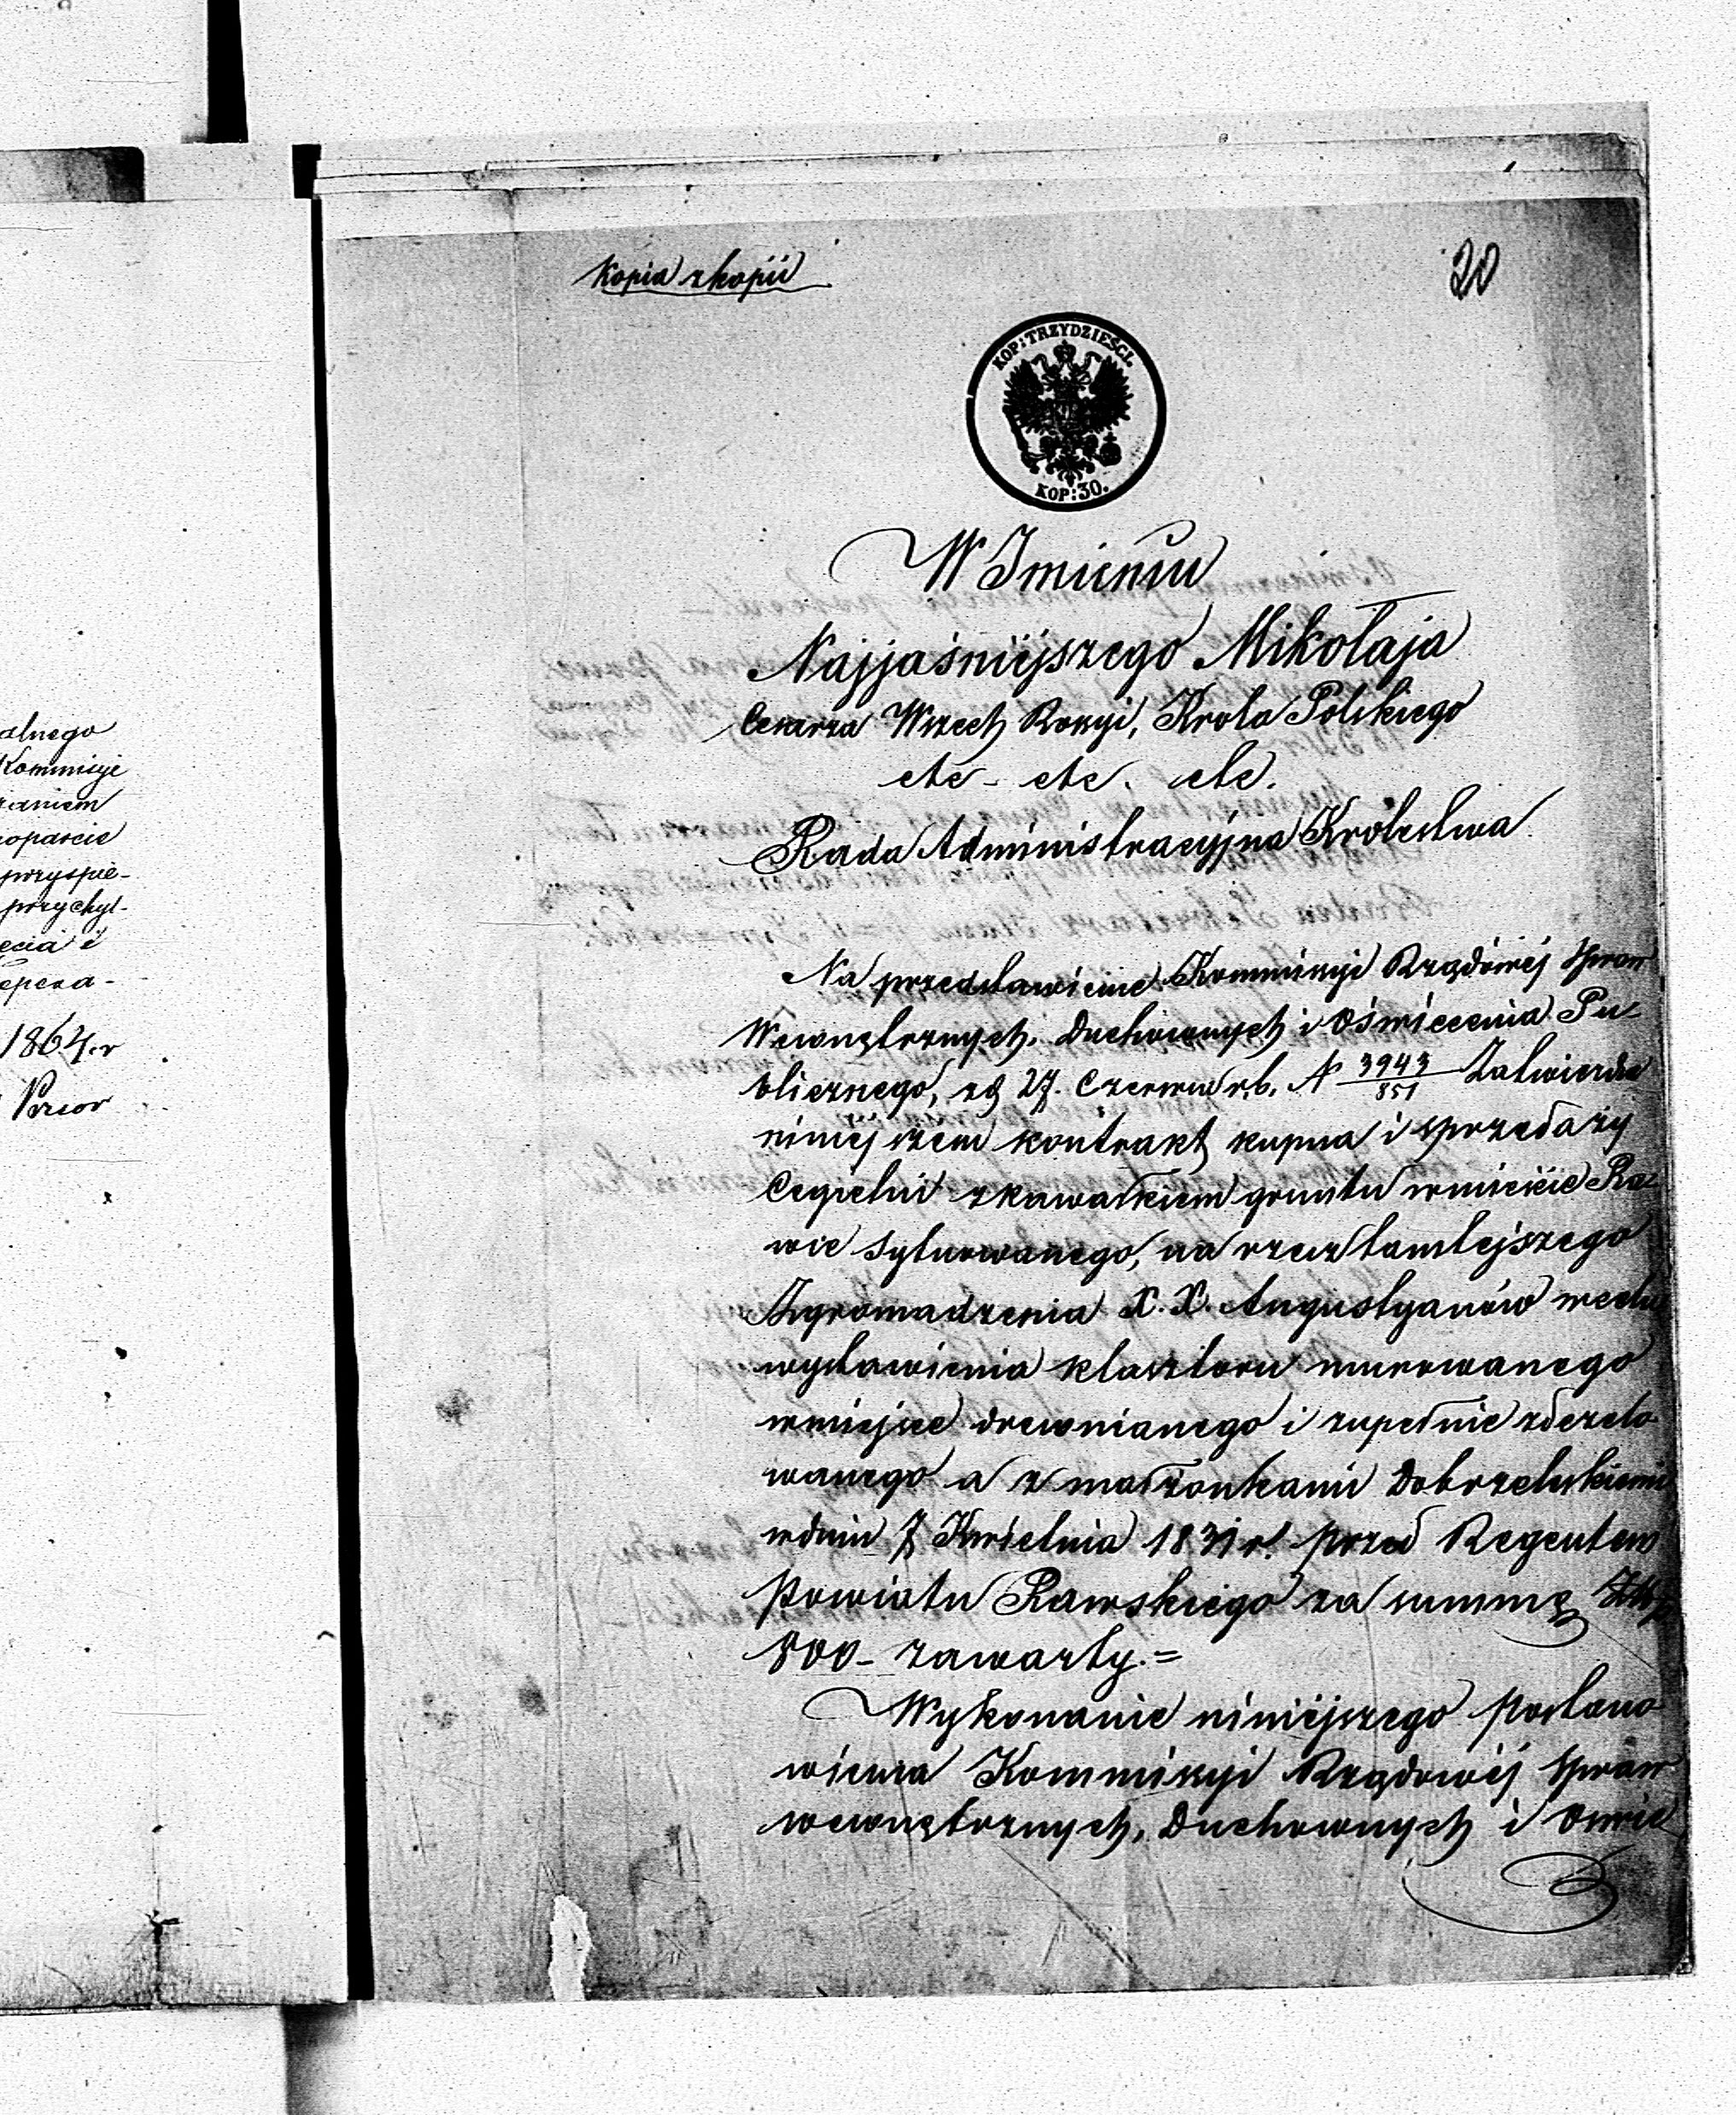 alnego
Kommisyi
zaniem
poparcie
przyspie-
przychyl-
ęcia i
1864.r
Przeor
Kopia z kopii
20
KOP: TRZYDZIEŚCI.
KOP: 30.
W Imieniu
Najjaśniejszego Mikołaja
Cesarza Wszech Rossyi, Krola Polskiego
etc - etc. etc.
Rada Administracyjna Królestwa
Na przedstawienie Kommissyi Rządowej Spraw
Wewnętrznych, Duchownych i Oświecenia Pu-
blicznego, z d 27. Czerwca r.b. N 3943/851 Zatwierdza
niniejszem kontrakt kupna i sprzedaży
Cegielni z kawałkiem gruntu w mieście Ra-
wie sytuowanego, na rzecz tamtejszego
Zgromadzenia X.X. Augustyanów w celu
wystawienia klasztoru murowanego
w miejsce drewnianego i zupełnie zdezelo
wanego a z małżonkami Dobrzelewskiemi
w dniu 7 Kwietnia 1831 r. przed Regentem
Powiatu Rawskiego za summę Złp
800 - zawarty. =
Wykonanie niniejszego postano
wienia Kommissyi Rządowej Spraw
wewnętrznych, Duchownych i Oświe